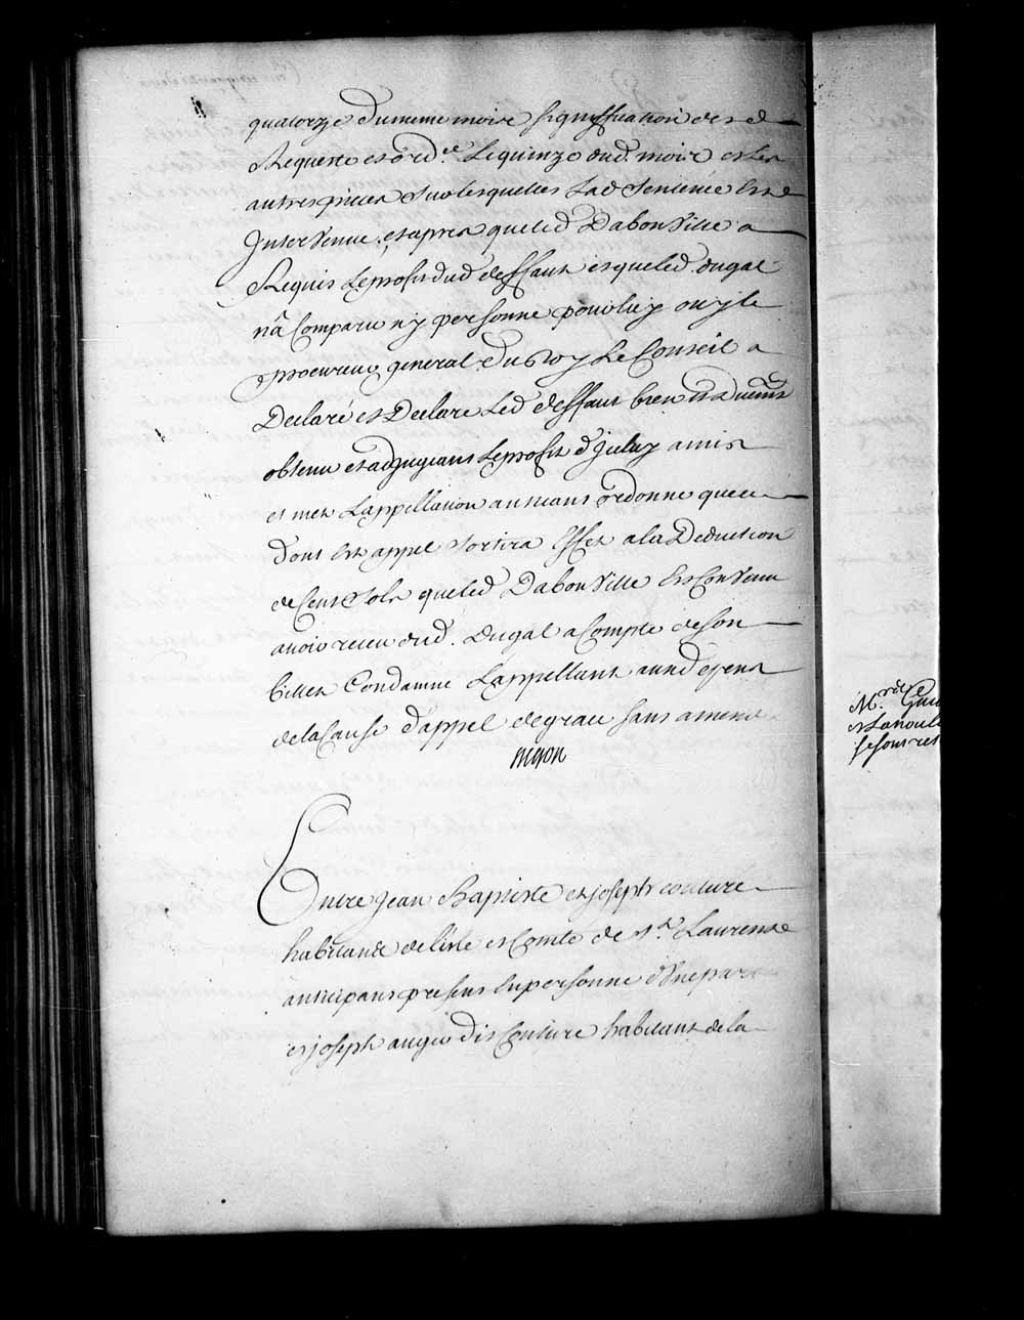 quatorze dumeme mois signiffication desd
Requeste et ord.ce Le quinze dud. mois et Les
autres pieces sur lesquelles Lad Sentence Est
Intervenue, et apres que led Dabonville a
Requis Le profit dud deffaut et que led. dugal
n'a Comparu ny personne pour luy ouy le
procureur general du Roy Le Conseil a
Declaré et Declare Led deffaut bien et deuement
obtenu et adjugeant Le profit d'Iceluy a mis
et met L'appellation au neant ordonne que ce
dont Est appel Sortira Effet a la Deduction
de Cent Sols que led Dabonville Est Convenu
avoir receu dud. Dugal a Compte de Son
billet Condamne L'appellant aux depens
de la Cause d'appel de grace sans amende

Entre Jean Baptiste et joseph couture
habitants de l'isle et Comté de St. Laurens
anticipans presens En personne d'Une part
et joseph auger dit Couture habitant de la
Mr